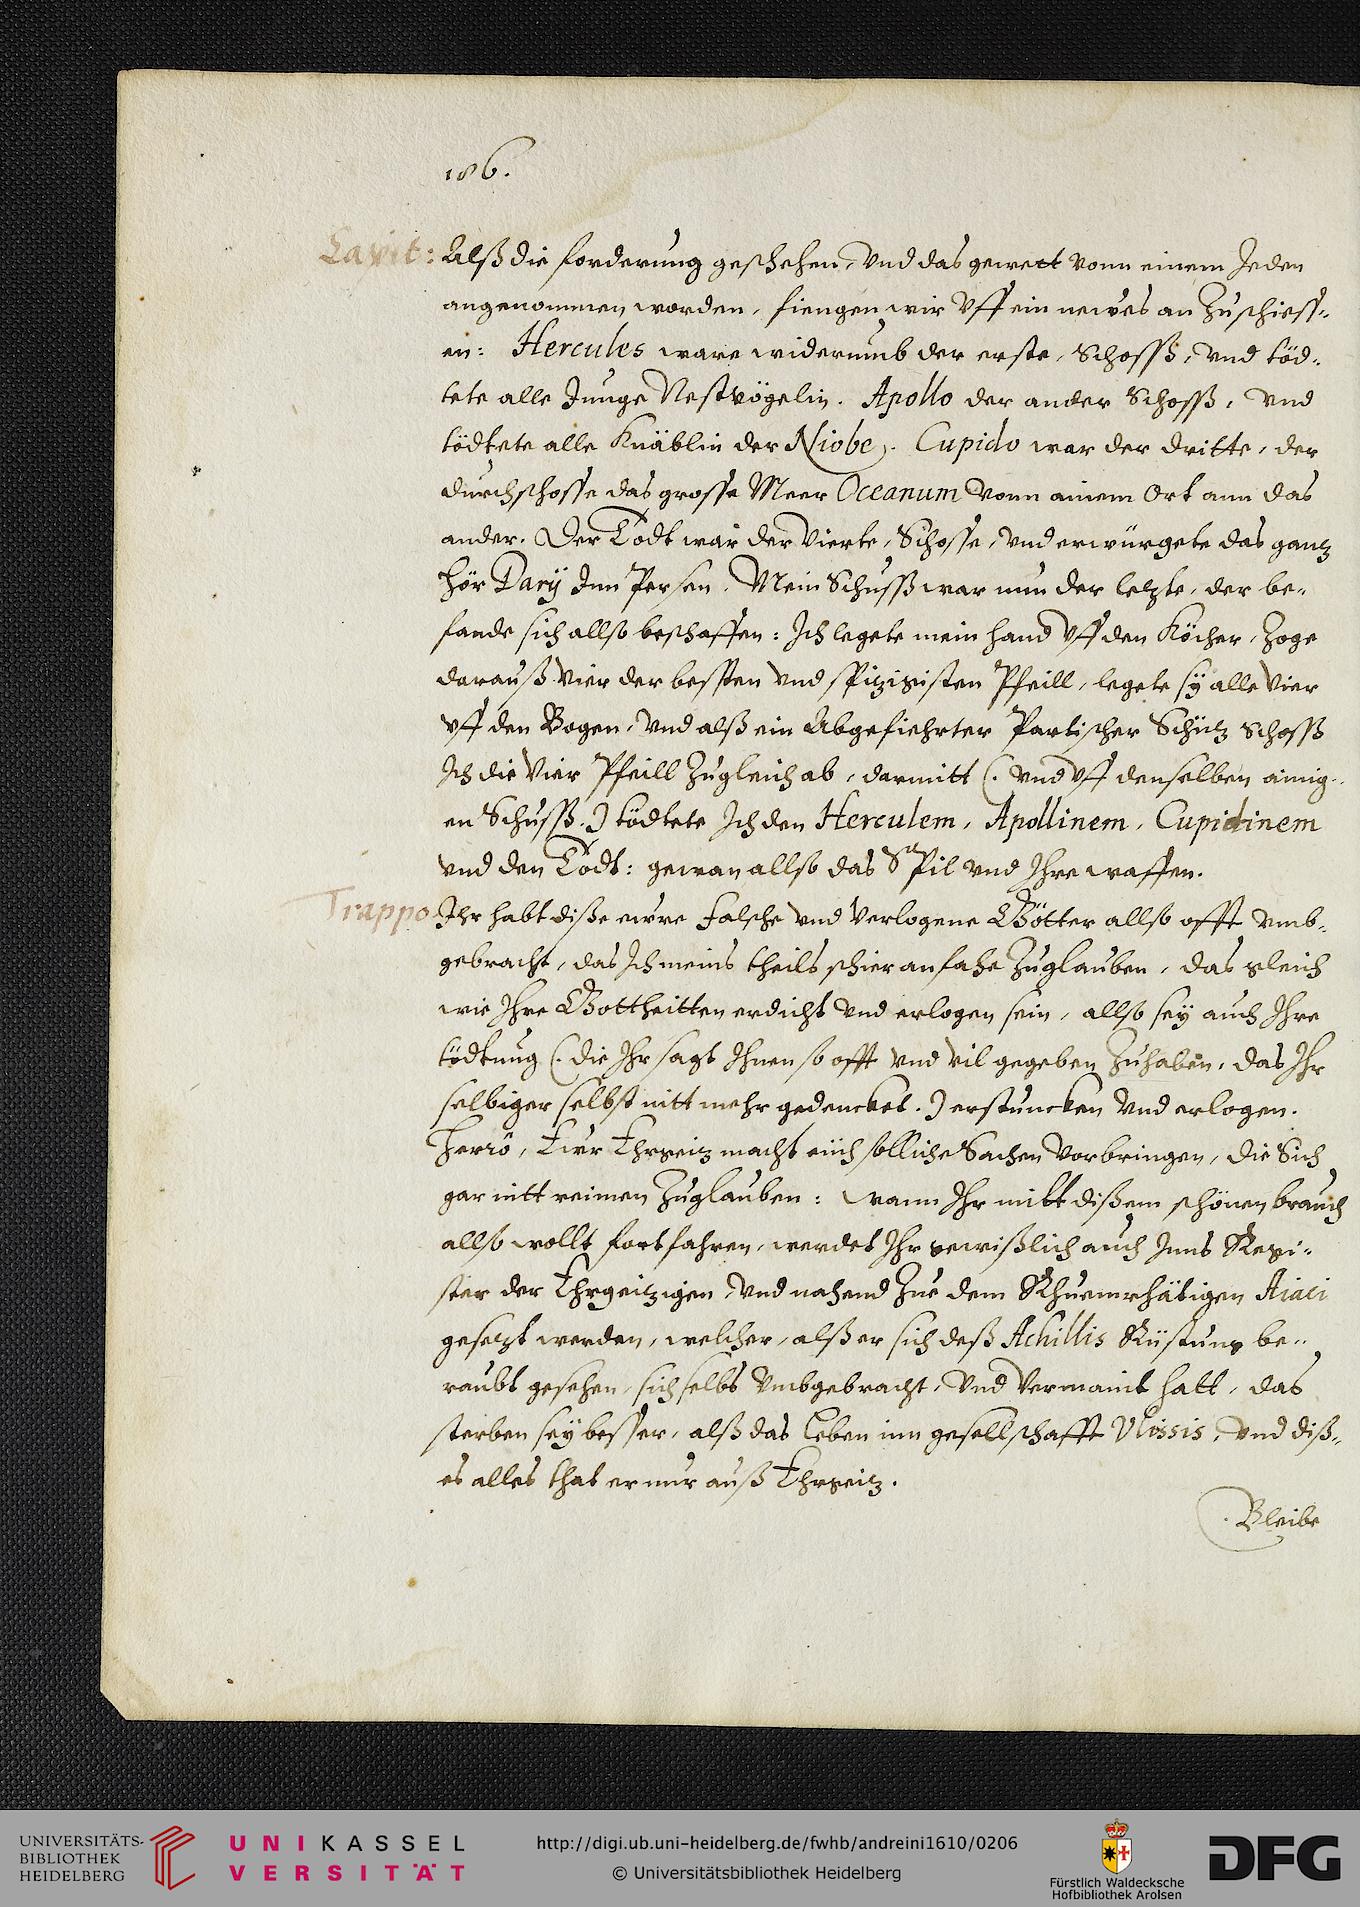 186.
Capit: Alß die forderung geschehen, vnd das gewett vonn einem Jeden
angenommen worden, fiengen wir vff ein newes an zuschiess-
en: Hercules ware widerumb der erste, schosß, vnd töd-
tete alle Junge Nestvögelin. Apollo der ander schosß, vnd
tödtete alle Knäblin der Niobe. Cupido war der dritte, der
durchschosse das grosse Meer Oceanum vonn einem Ort ann das
ander. Der Todt war der vierte, Schosse, vnd erwürgete das gantz
hör Darÿ Inn Persen. Mein Schusß war nun der letzte, der be-
fande sich allso beschaffen: Ich legete mein hand vff den Köcher, zoge
darauß vier der bessten vnd spitzigisten Pfeill, legete sÿ alle vier
vff den Bogen, vnd alß ein Abgefiehrter Partischer Schütz schosß
Ich die vier Pfeill zugleich ab, darmitt (. vnd vff denselben ainig-
en Schusß.) tödtete Ich den Herculem, Apollinem, Cupidinem
vnd den Todt: gewan allso das Spil vnd Ihre waffen.
Trappo Ihr habt diße ewre falsche vnd verlogene Götter allso offt vmb-
gebracht, das Ich meins theils schier anfahe zuglauben, das gleich
wie Ihre Gottheitten erdicht vnd erlogen sein, allso seÿ auch Ihre
tödtung (. die Ihr sagt Ihnen so offt vnd vil gegeben zuhaben, das Ihr
selbiger selbst nitt mehr gedencket.) erstuncken vnd erlogen.
Herrö, Ewr Ehrgeitz macht eüch solliche Sachen vorbringen, die Sich
gar nitt reimen zuglauben: wann Ihr mitt dißem schönen brauch
allso wollt fortfahren, werdet Ihr gewißlich auch Inns Regi-
ster der Ehrgeitzigen, vnd nahend zue dem Rhuemrhätigen Aiaci
gesetzt werden, welcher, alß er sich deß Achillis Rüstung be-
raubt gesehen, sich selbs vmbgebracht, vnd vermaint hatt, das
sterben seÿ besser, alß das leben inn gesellschafft Vlissis, vnd diß-
es alles that er nur auß Ehrgeitz.
Bleibe
UNIVERSITÄTS-
BIBLIOTHEK
HEIDELBERG
UNIKASSEL
VERSITÄT
http://digi.ub.uni-heidelberg.de/fwhb/andreini1610/0206
© Universitätsbibliothek Heidelberg
Fürstlich Waldecksche
Hofbibliothek Arolsen
DFG